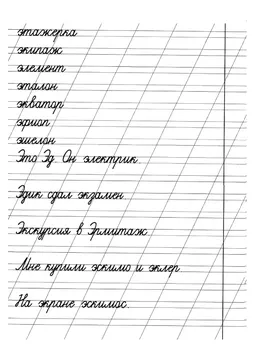 этажерка
экипаж
элемент
эталон
экватор
эфиоп
эшелон
Это Эд. Он электрик.
Эдик сдал экзамен.
Экскурсия в Эрмитаж.
Мне купили эскимо и эклер.
На экране эскимос.